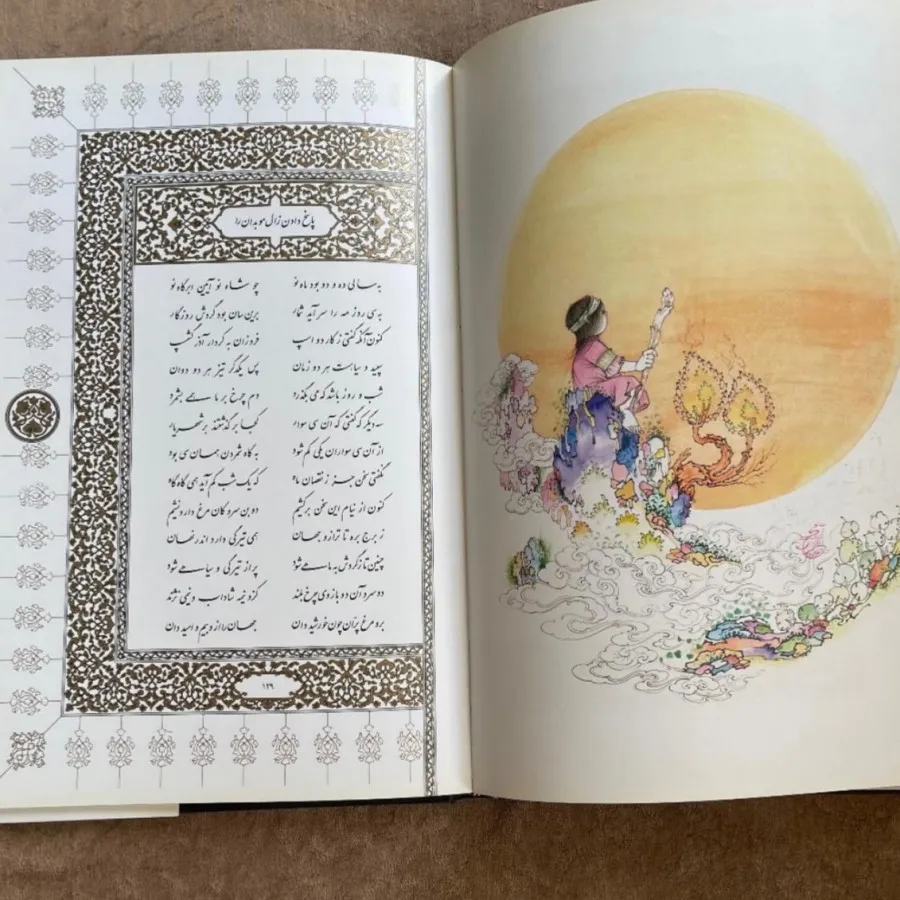 پاسخ دادن زال موبدان را
به سالی ده و دو بود ماه نو چو شاه نو آیین ابر گاه نو
به سی روز مه را سر آید شمار برین سان بود گردش روزگار
کنون آنکه گفتی ز کار دو اسپ فروزان به کردار آذرگشسپ
سپید و سیاهست هر دو زمان پس یکدگر تیز هر دو دوان
شب و روز باشد که می بگذرد دم چرخ بر ما همی بشمرد
سه دیگر که گفتی که آن سی سوار کجا بر گذشتند بر شهریار
از آن سی سواران یکی کم شود به گاه شمردن همان سی بود
نگفتی سخن جز ز نقصان ماه که یک شب کم آید همی گاه گاه
کنون از نیام این سخن برکشیم دو بن سرو کان مرغ دارد نشیم
ز برج بره تا ترازو جهان همی تیرگی دارد اندر نهان
چنین تا ز گردش به ماهی شود پر از تیرگی و سیاهی شود
دو سرو آن دو بازوی چرخ بلند کزو نیمه شاداب و نیمی نژند
برو مرغ پران چون خورشید دان جهان را ازو بیم و امید دان
۱۲۹